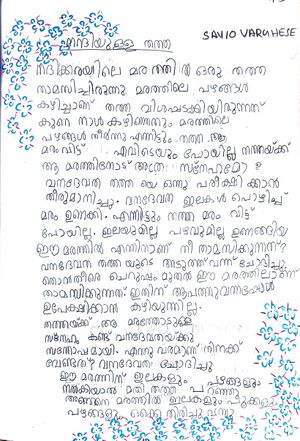 SAVIO VARGHESE
നന്ദിയുള്ള തത്ത
നദിക്കരയിലെ മരത്തിൽ ഒരു തത്ത
താമസിച്ചിരുന്നു മരത്തിലെ പഴങ്ങൾ
കഴിച്ചാണ് തത്ത വിശപ്പടക്കിയിരുന്നത്
കുറെ നാൾ കഴിഞ്ഞപ്പോൾ മരത്തിലെ
പഴങ്ങൾ തീർന്നു എന്നിട്ടും തത്ത ആ
മരംവിട്ട് എവിടെയും പോയില്ല തത്തയ്ക്ക്
ആ മരത്തിനോട് അത്ര സ്നേഹമോ?
വനദേവത തത്ത യെ ഒന്നു പരീക്ഷിക്കാൻ
തീരുമാനിച്ചു. വനദേവത ഇലകൾ പൊഴിച്ച്
മരം ഉണക്കി. എന്നിട്ടും തത്ത മരം വിട്ട്
പോയില്ല. ഇലയുമില്ല പഴവുമില്ല ഉണങ്ങിയ
ഈ മരത്തിൽ എന്തിനാണ് നീ താമസിക്കുന്നത്?
വനദേവത തത്തയുടെ അടുത്ത് വന്ന് ചോദിച്ചു.
ഞാൻതീരെ ചെറുപ്പം മുതൽ ഈ മരത്തിലാണ്
താമസിക്കുന്നത് ഇതിന് ആപത്തുവന്നപ്പോൾ
ഉപേക്ഷിക്കാൻ കഴിയുന്നില്ല.
തത്തയ്ക്ക് ആ മരത്തോടുള്ള
സ്നേഹം കണ്ട് വനദേവതയ്ക്കു
സന്തോഷമായി. എന്നു വരമാണ് നിനക്ക്
വേണ്ടത്? വനദേവത ചോദിച്ചു
ഈ മരത്തിന് ഇലകളും പഴങ്ങളും
നൽകിയാൽ മതി തത്ത പറഞ്ഞു
അങ്ങനെ മരത്തിൽ ഇലകളും പൂക്കളും
പഴങ്ങളും ഒക്കെ തിരിച്ചു വന്നു